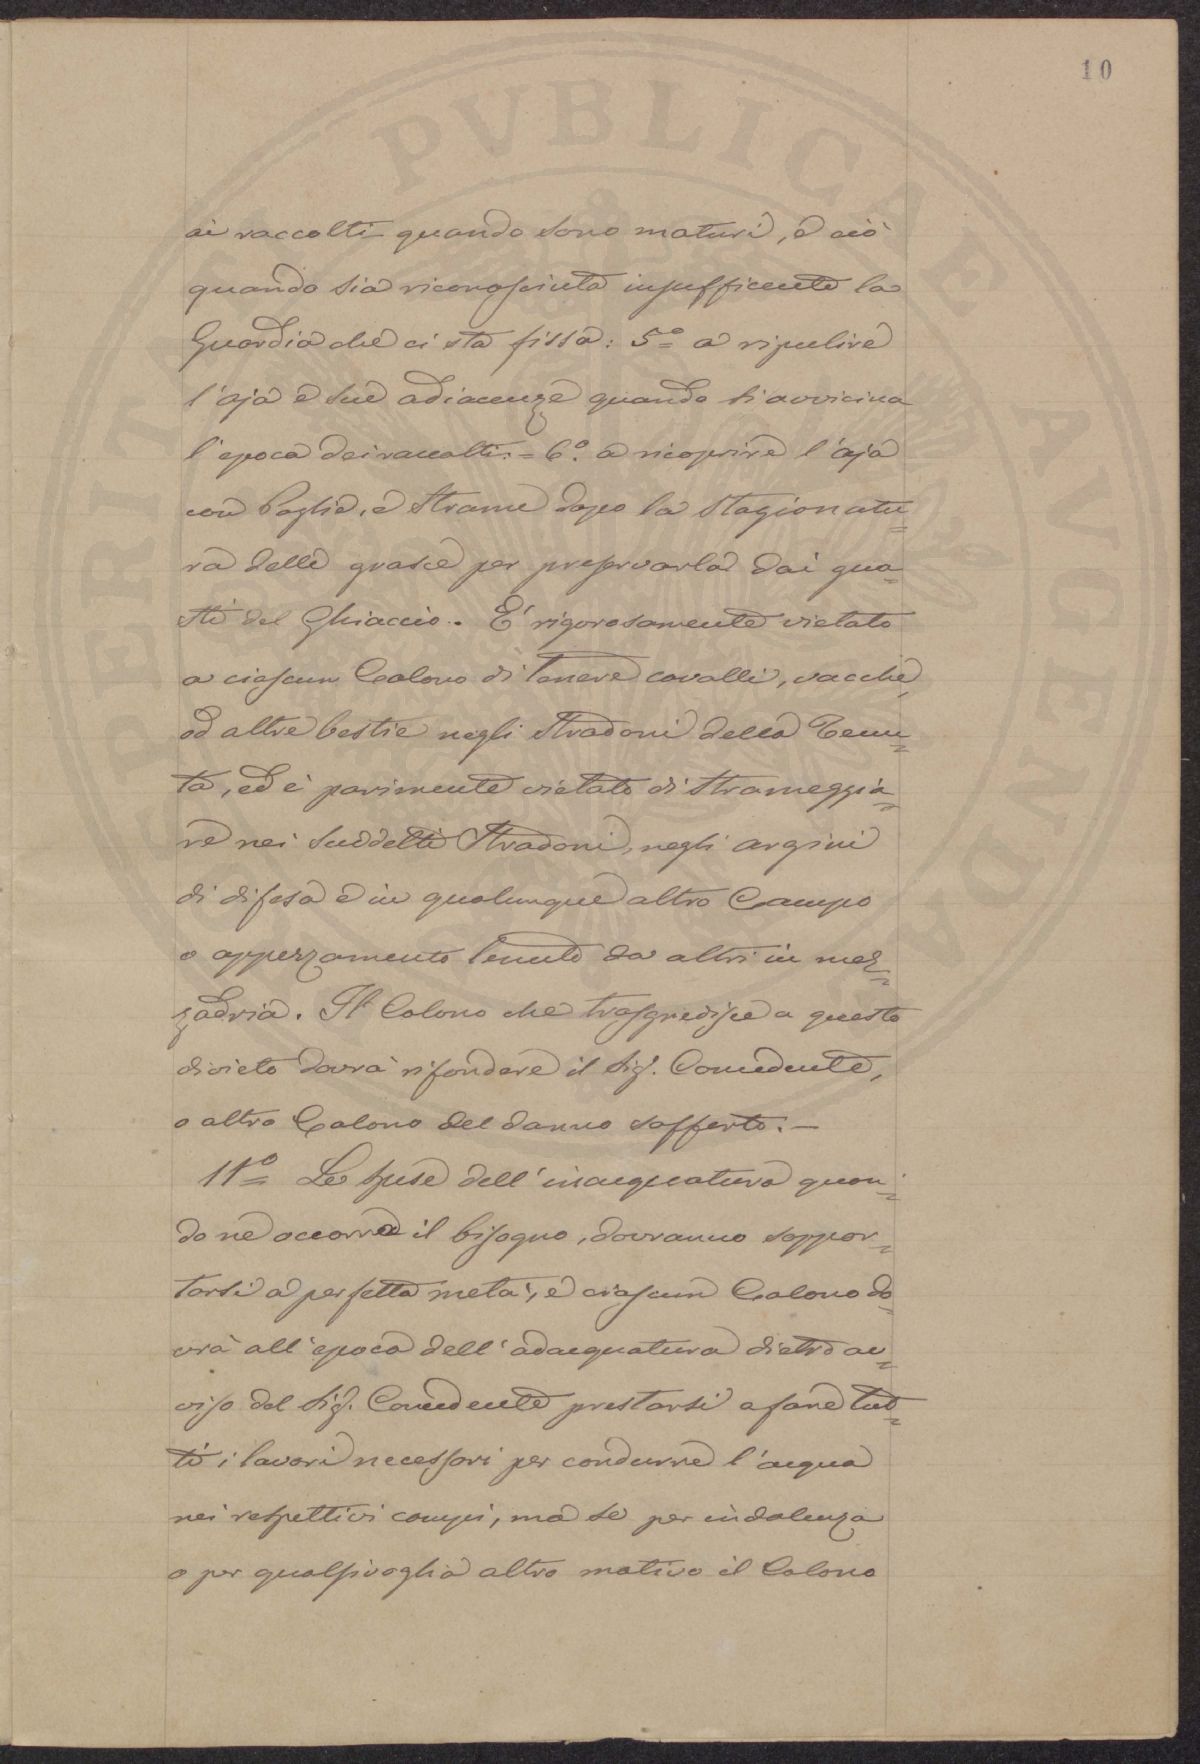 10
ai raccolti quando sono maturi, e ciò
quando sia riconosciuta insufficente la
Guardia che ci sta fissa: 5.º= a ripulire
l'aja e sue adiacenze quando s'avvicina
l'epoca dei raccolti: = 6.º a ricoprire l'aja
con Paglie, e Strame dopo la Stagionatu=
ra delle grasce per preservarla dai gua=
sti del Ghiaccio. È rigorosamente vietato
a ciascun Colono di tenere cavalli, vacche,
od altre bestie negli Stradoni della Tenu=
ta, ed è parimente vietato di Strameggia=
re nei suddetti Stradoni, negli argini
di difesa e in qualunque altro Campo
o appezzamento tenuto da altri in mez=
zadria. Il Colono che trasgredisce a questo
divieto dovrà rifondere il Sig. Concedente,
o altro Colono del danno sofferto. —
11º= Le spese dell'inacquatura quan=
do ne occorra il bisogno, dovranno soppor=
tarsi a perfetta metà, e ciascun Colono do=
vrà all'epoca dell'adacquatura dietro av=
viso del Sig. Concedente prestarsi a fare tut=
ti i lavori necessari per condurre l'acqua
nei respettivi campi, ma se per indolenza
o per qualsivoglia altro motivo il Colono
VERITAS PVBLICAE AVGENDA